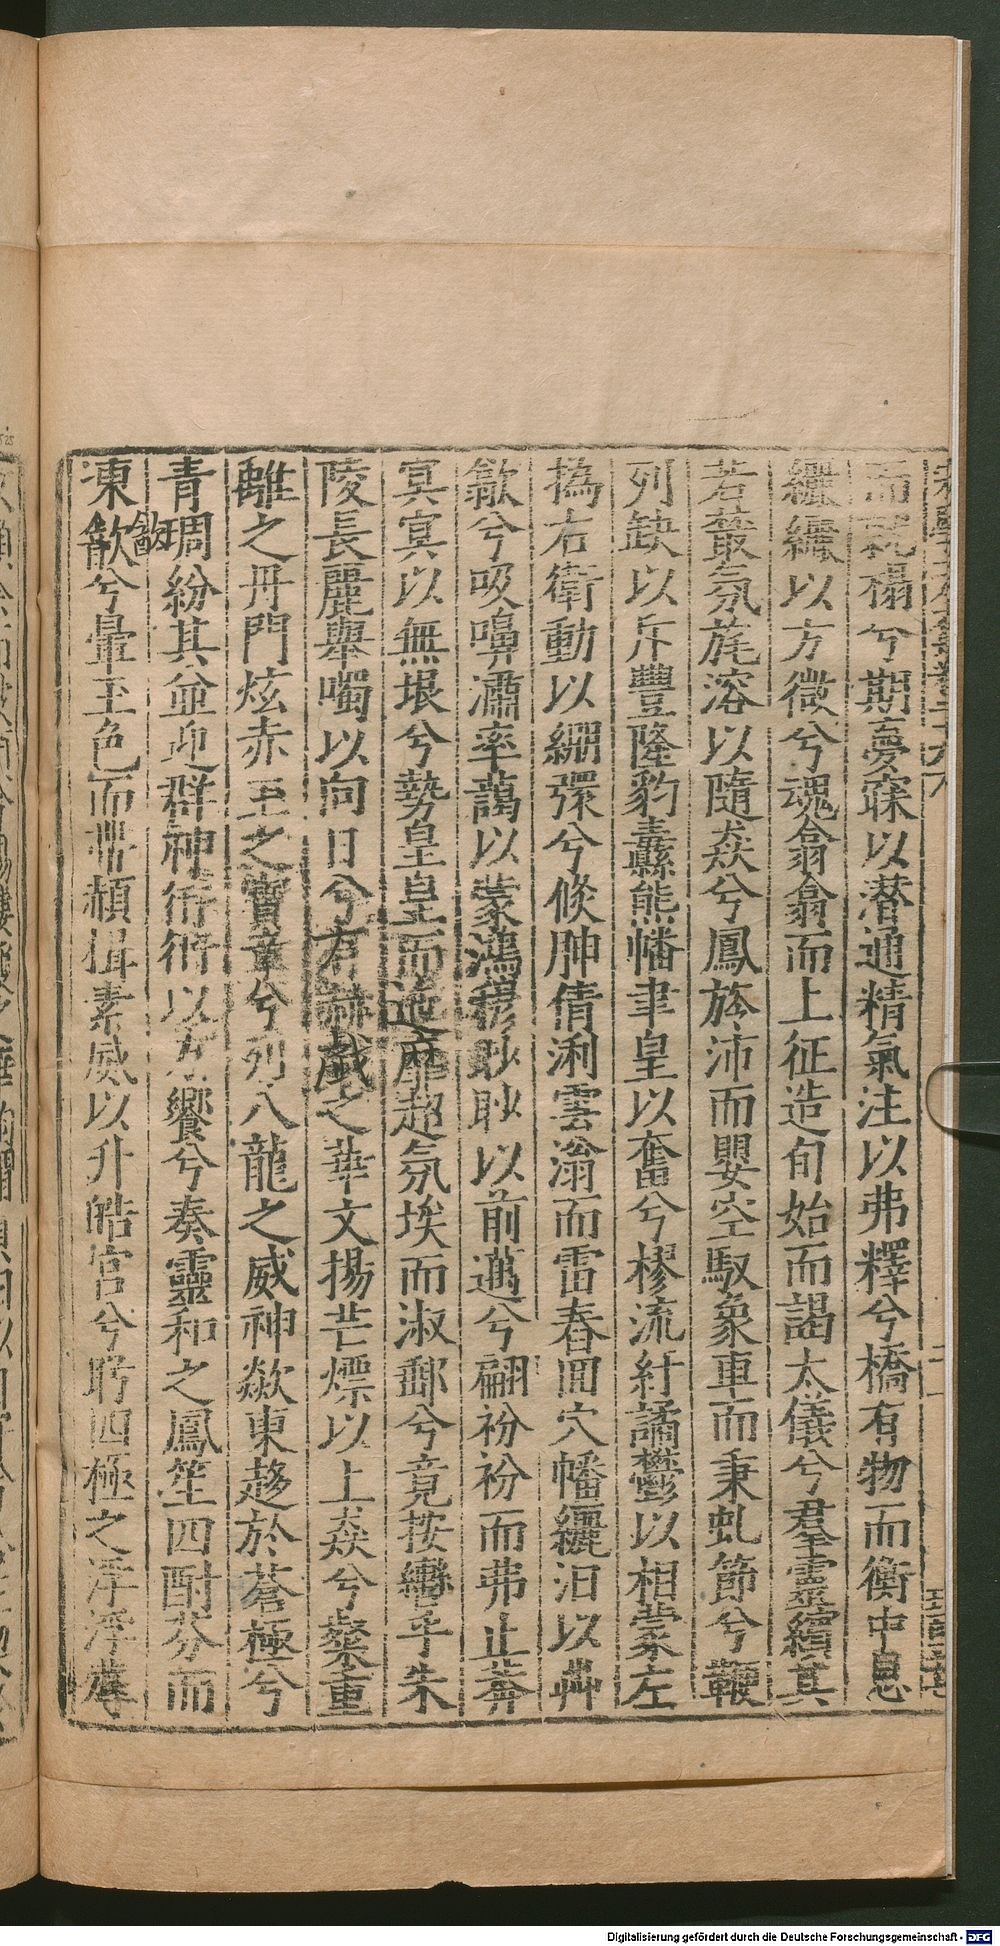 而就榻兮期夢寐以潛通精氣注以弗釋兮橋有物而衡中息
纚纚以方微兮魂翕翕而上征造旬始而謁太儀兮羣靈繽其
若叢氛旄溶以隨猋兮鳳旂沛而嬰空馭象車而秉虬節兮鞭
列缺以斥豐隆豹纛熊幡聿皇以奮兮樛流紆譎鬱以相蒙左
撝右衛動以繃彋兮倐胂倩浰雲滃而雷舂回穴幡纚汩以茻
歙兮吸嚊潚率藹以蒙鴻穆眇眇以前邁兮翩衯衯而弗止莾
冥冥以無垠兮勢皇皇而迆靡超氛埃而淑郵兮竟按轡乎朱
陵長麗舉噣以向日兮有赫戲之華文揚芒熛以上猋兮粲重
離之丹門炫赤玉之寶章兮列八龍之威神歘東趍於蒼極兮
青琱紛其並迎群神衎衎以方饗兮奏靈和之鳳笙四酎芬而
凍歙兮暈玉色而帶頳揖素威以升皓宫兮眄四極之浮浮蓐
Digitalisierung gefördert durch die Deutsche Forschungsgemeinschaft - DFG